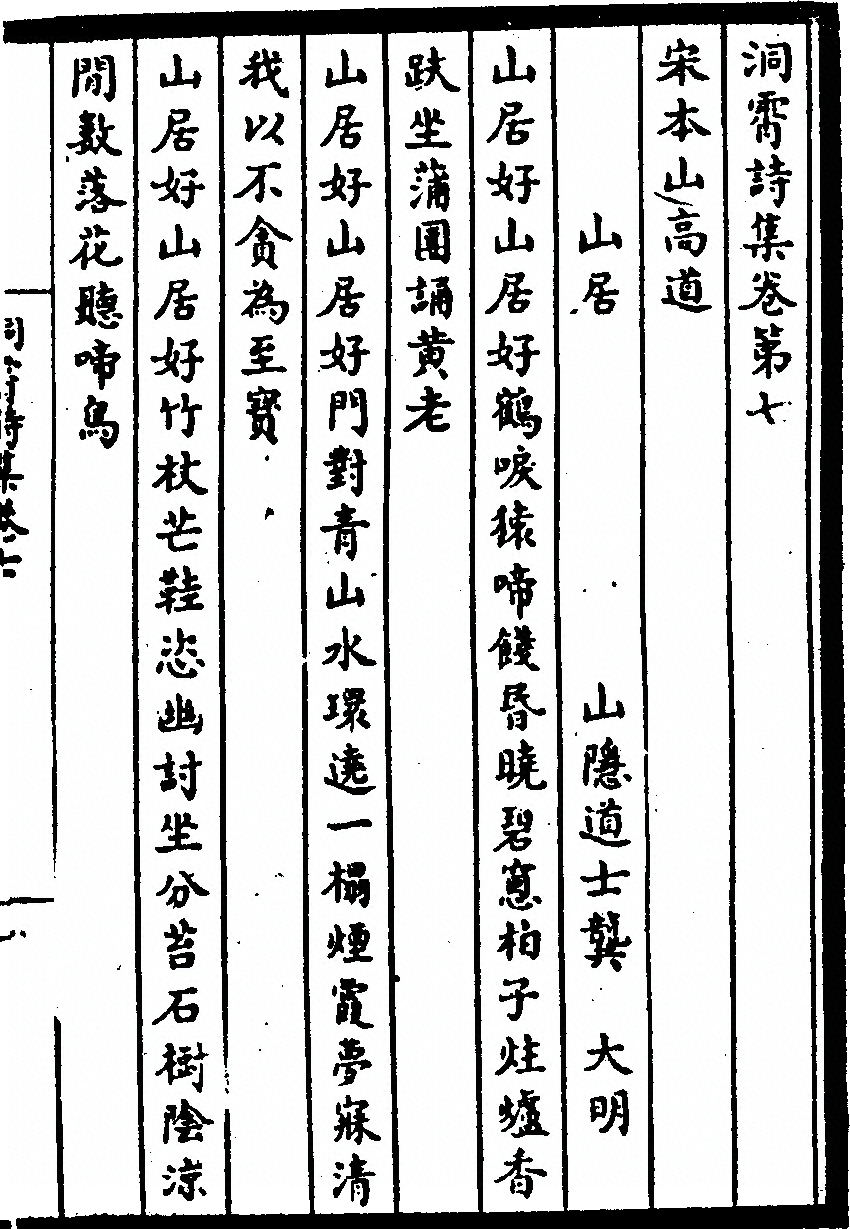 洞霄詩集卷第七
宋本山高道
山居 山隱道士龔 大明
山居好山居好鶴唳猿啼餞昏曉碧窻柏子炷爐香
趺坐蒲團誦黃老
山居好山居好門對青山水環遶一榻煙霞夢寐清
我以不貪為至寳
山居好山居好竹杖芒鞋恣幽討坐分苔石樹陰涼
閒數落花聽啼鳥